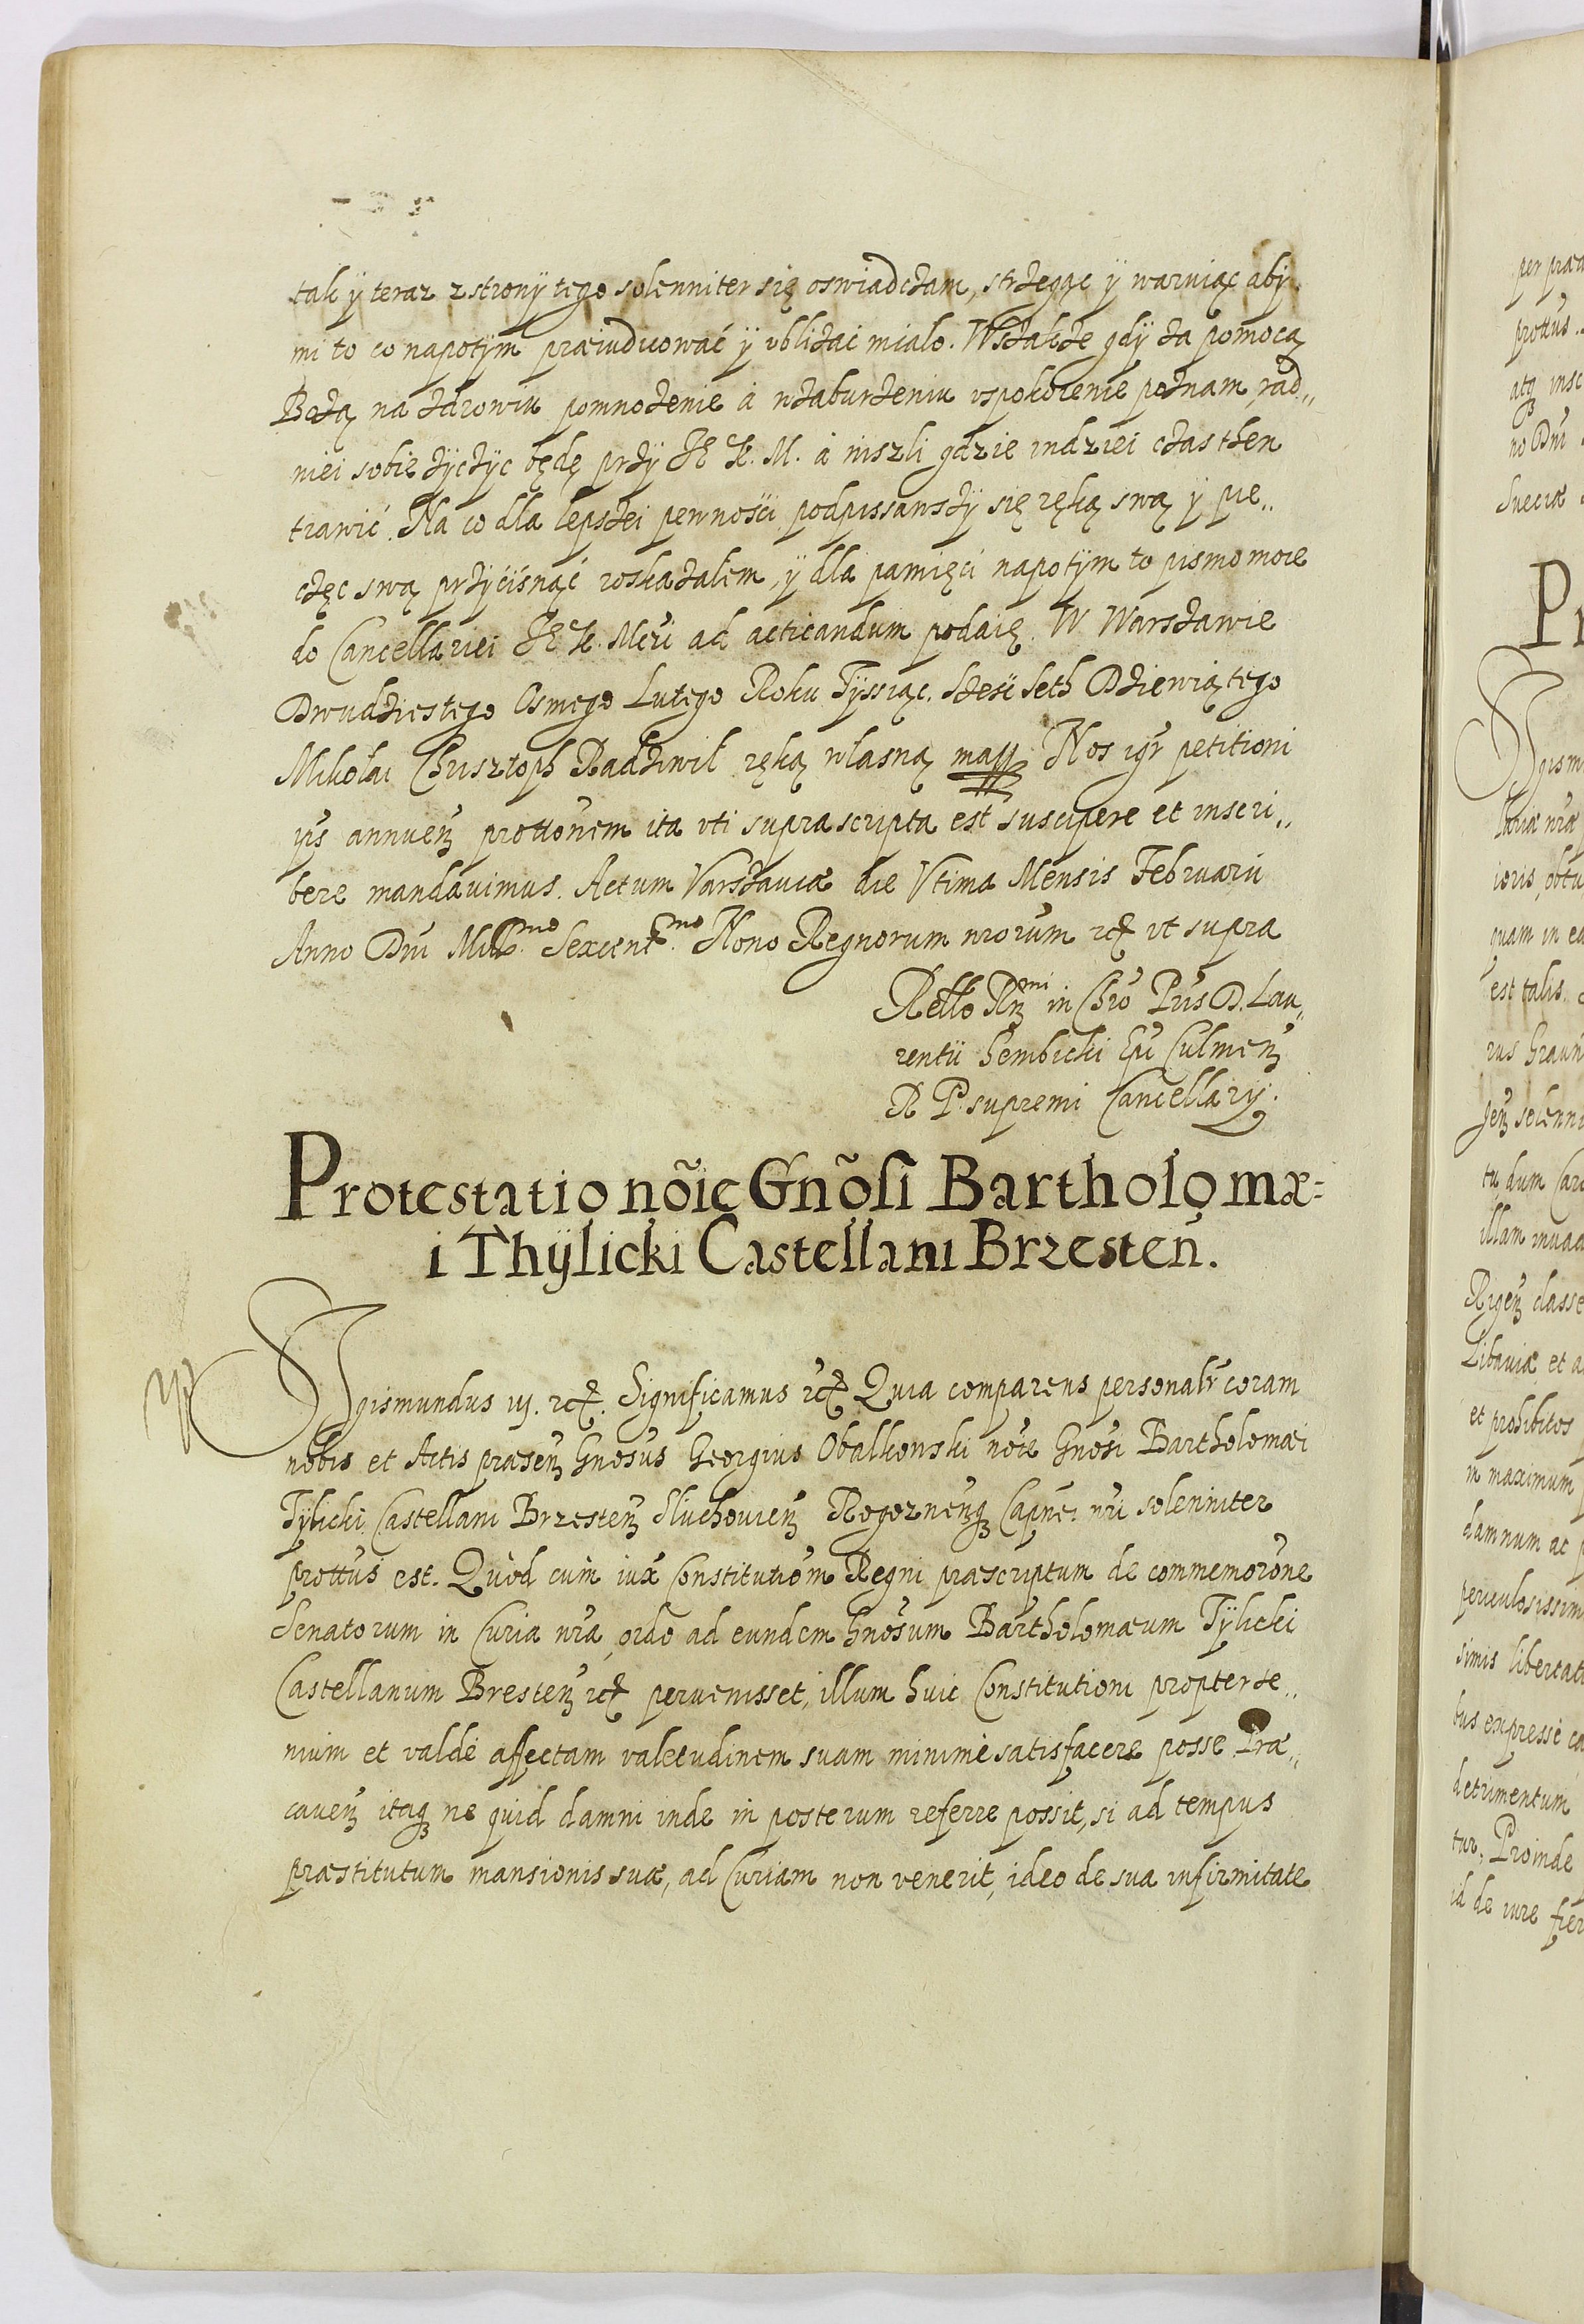 tak ÿ teraz z stronÿ tego solenniter się oswiadcżam, strżegąc ÿ waruiąc abÿ
mi to co napotÿm præiudicować ÿ vbliżać miało. Wszakże gdÿ za pomocą
Bożą na zdrowiu pomnożenie á wzaburzeniu vspokoienie poznam, rad„
niei sobie życżÿc będę przÿ JE K. M. á niszli gdzie indziei cżas then
trawić. Na co dla lepszei pewności podpissawszÿ się ręką swą ÿ pie„
cżęc swą przÿcisnąć roskazałem, ÿ dla pamięci napotÿm to pismo moie
do Cancellariei JE K. Mci ad acticandum podaię. W Warszawie
Dwudziestego Osmego Lutego Roku Tÿssiąc. Sześć Seth Dziewiątego
Mikołai Chrisztoph Radziwił ręką własną mapp Nos igr petitioni
ips annuen prottonem ita vti suprascripta est suscipere et inscri„
bere mandauimus. Actum Varszauiæ die Vtima Mensis Februarii
Anno Dni Mill.mo Sexcent.mo Nono Regnorum nrorum rc vt supra
Rello Rmi in Chro Pris D. Lau„
rentii Gembicki Epi Culmen
R P. supremi Cancellarij.
Protestatio nõie Gnõsi Bartholomæ=
i Thÿlicki Castellani Brzesteń.
Sigismundus iij. rc. Significamus rc Quia comparens personalr coram
nobis et Actis præsen Gnosus Georgius Obalkowski noie Gnosi Bartholomæi
Tÿlicki Castellani Brzesten Sluchouien Rogoznenq Capnei nri solenniter
prottus est. Quòd cum iux Constitutiom Regni præscriptum de commemorone
Senatorum in Curia nra, ordo ad eundem Gnosum Bartholomæum Tÿlicki
Castellanum Bresten rc peruenisset, illum huic Constitutioni propter te„
nuim et valdè affectam valetudinem suam minimè satisfacere posse Præ„
cauen itaq ne quid damni inde in posterum referre possit, si ad tempus
præstitutum mansionis suæ, ad Curiam non venerit, ideo de sua infirmitate